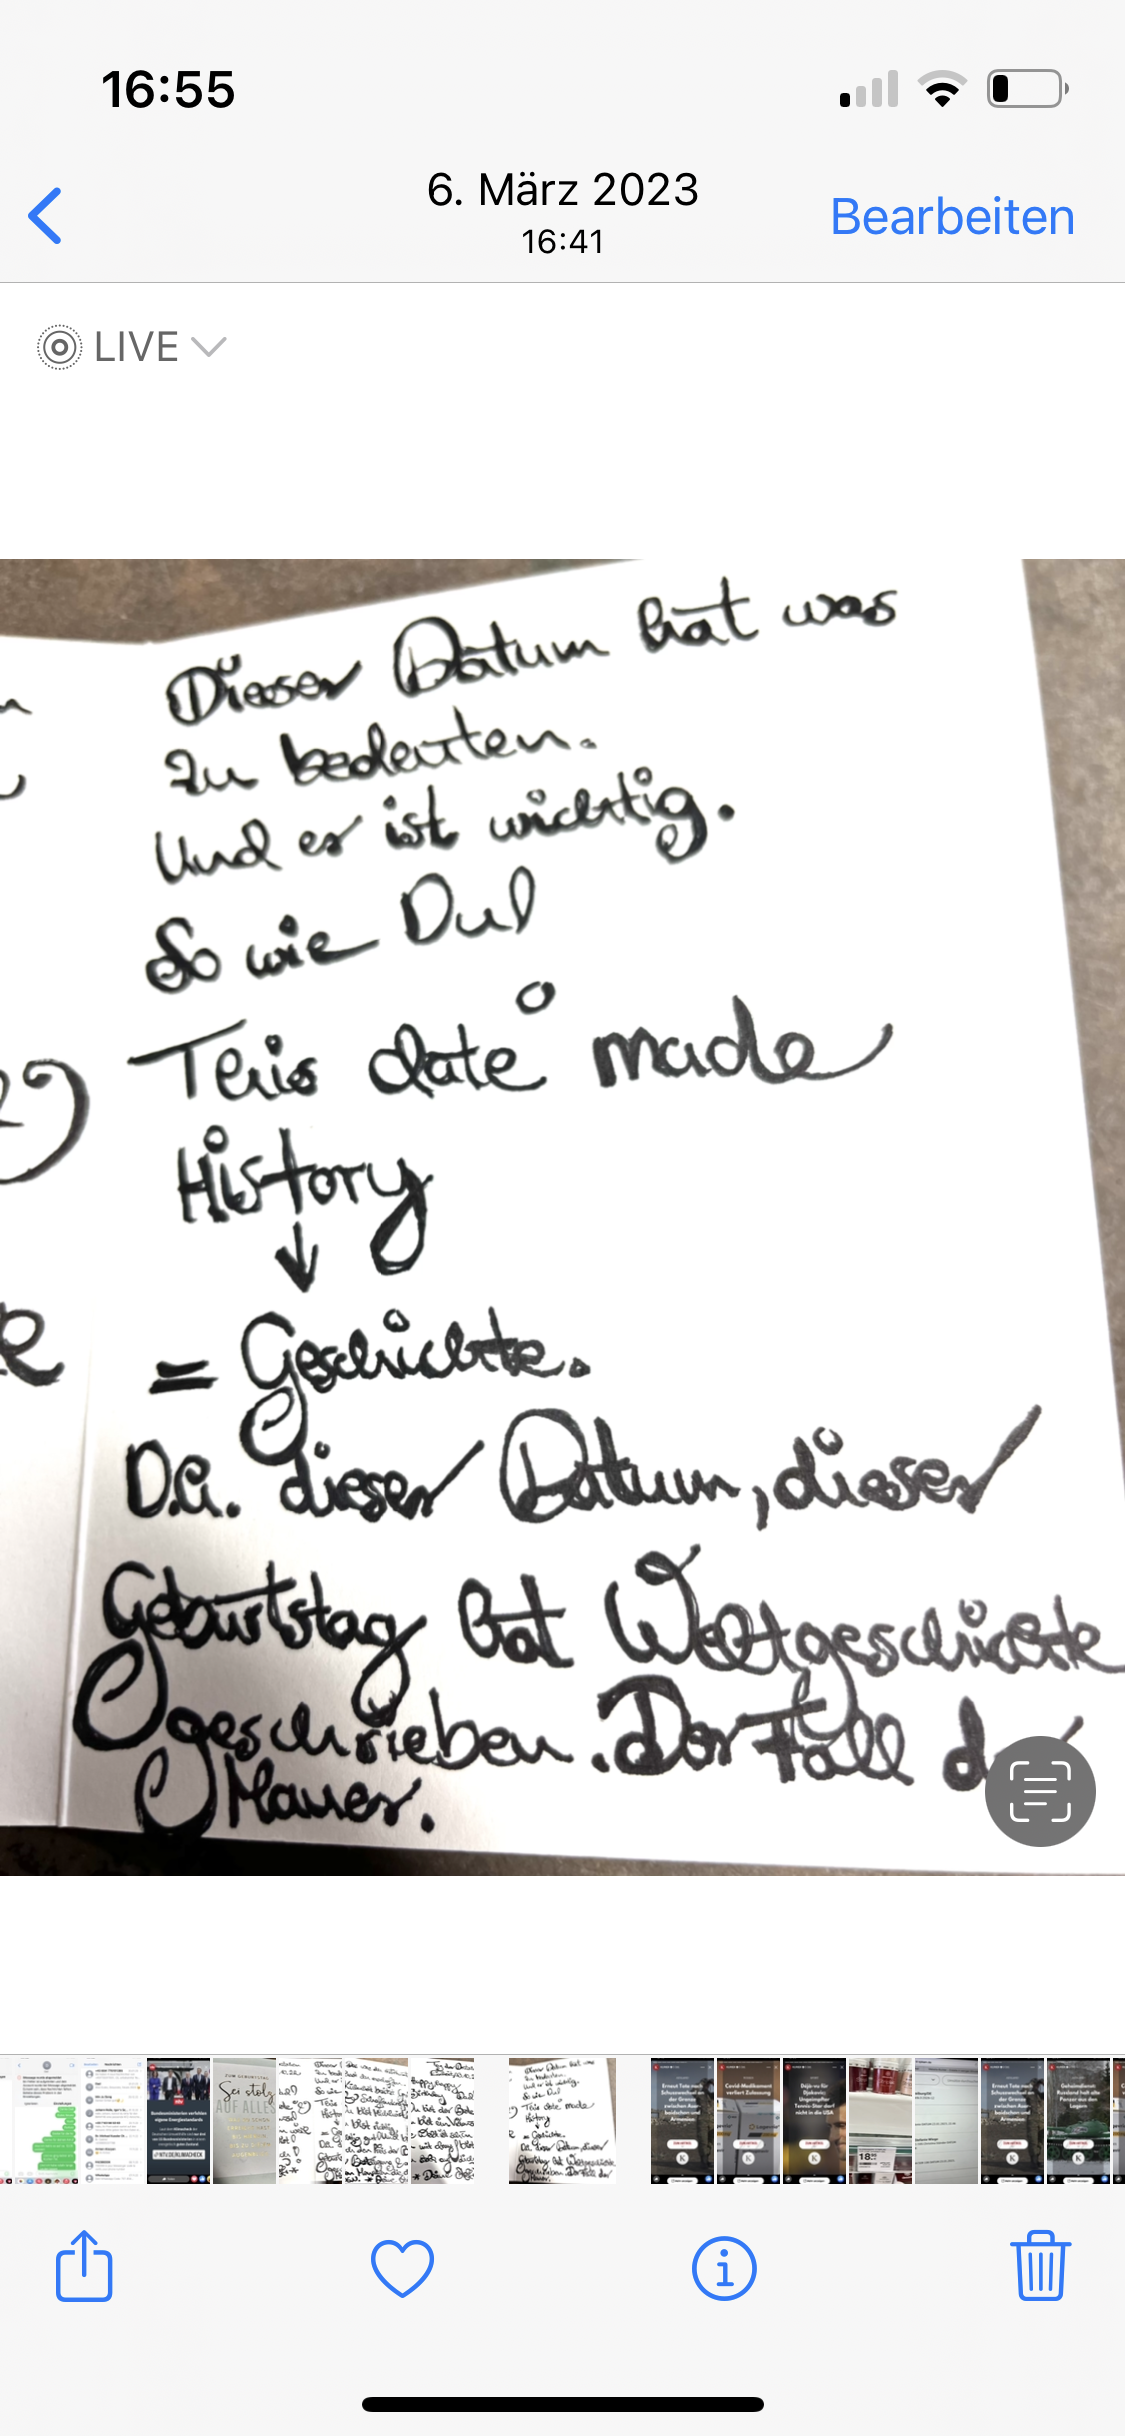 16:55
6. März 2023
16:41
Bearbeiten
LIVE
Dieser Datum hat was
zu bedeuten.
Und er ist wichtig.
So wie Du!
This date made
History
↓
= Geschichte.
D.h. dieser Datum, dieser
Geburtstag hat Weltgeschichte
geschrieben. Der Fall
Mauer.
Sei stolz
AUF ALLES
18